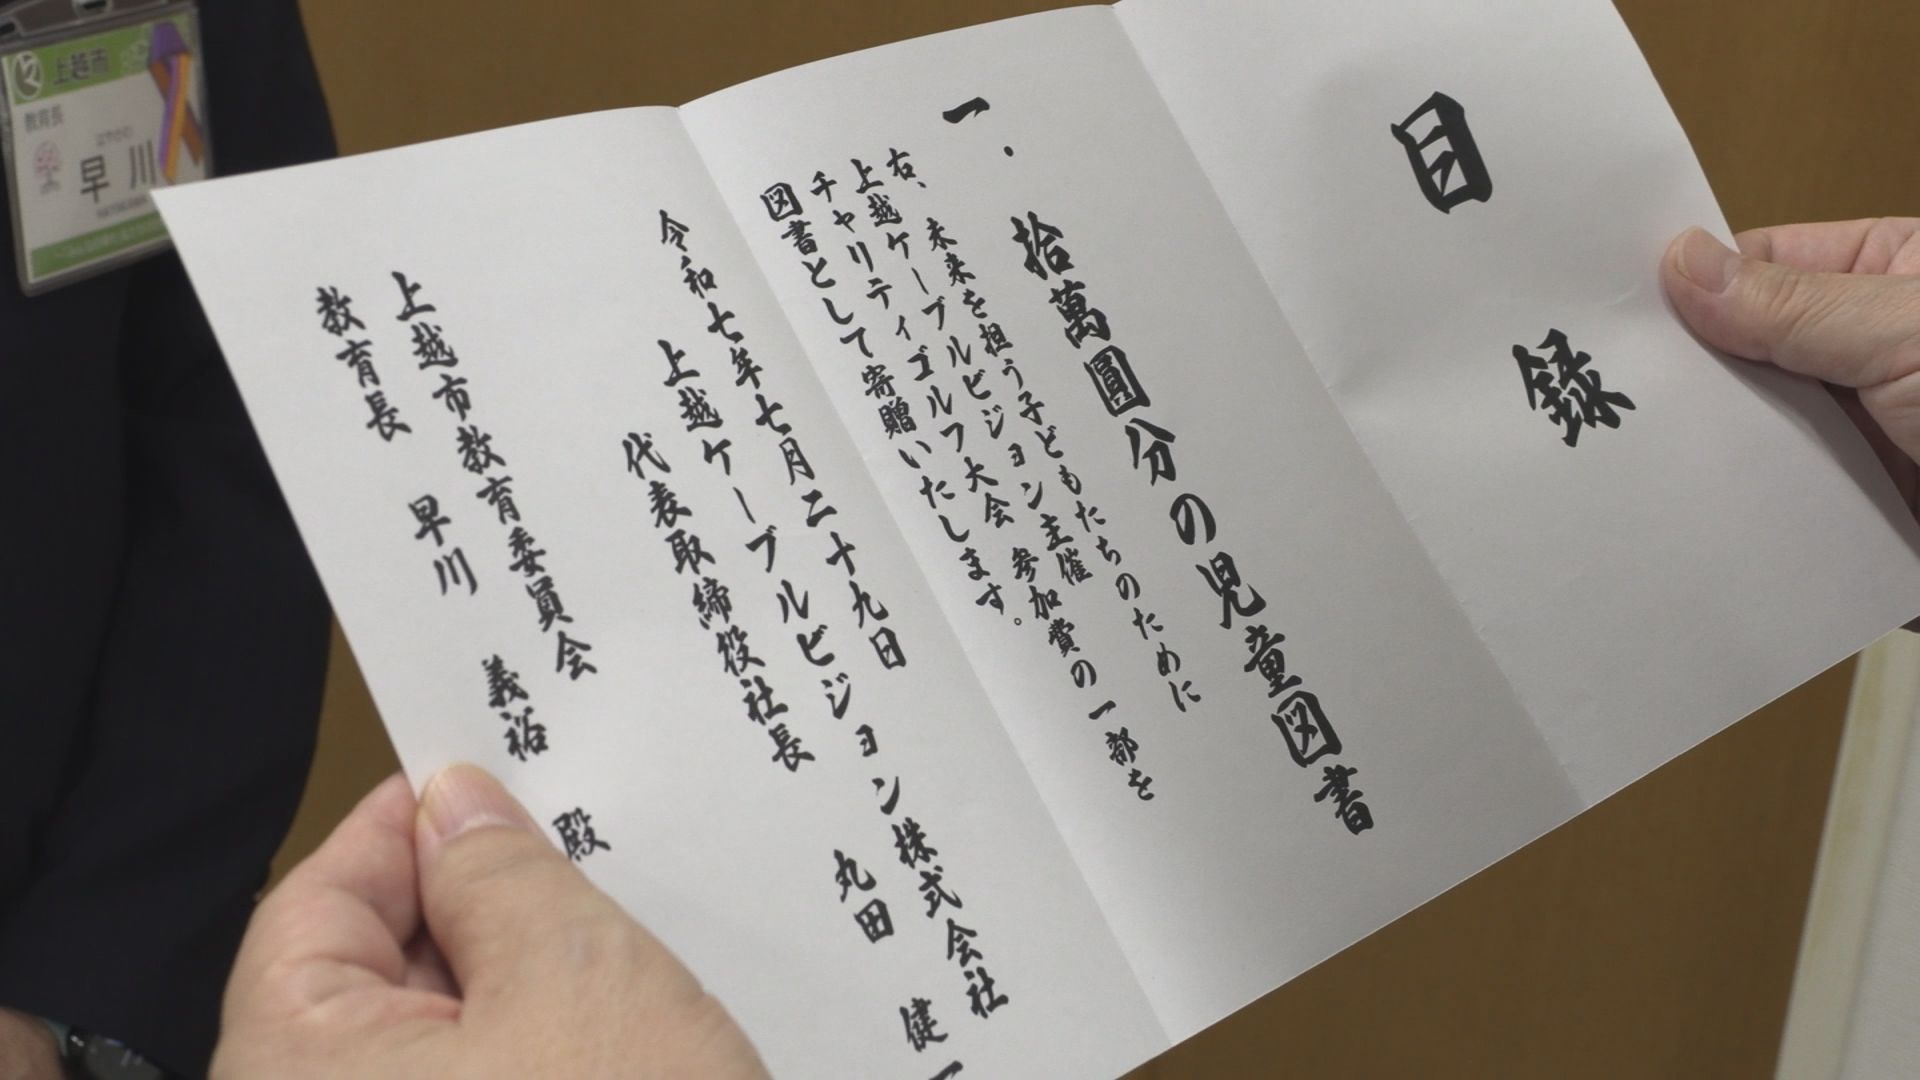 目録
一. 拾萬圓分の児童図書
右、未来を担う子どもたちのために
上越ケーブルビジョン主催
チャリティゴルフ大会 参加費の一部を
図書として寄贈いたします。
令和七年七月二十九日
上越ケーブルビジョン株式会社
代表取締役社長 丸田 健一
上越市教育委員会
教育長 早川 義裕 殿
上越市
教育長
はやかわ
早川